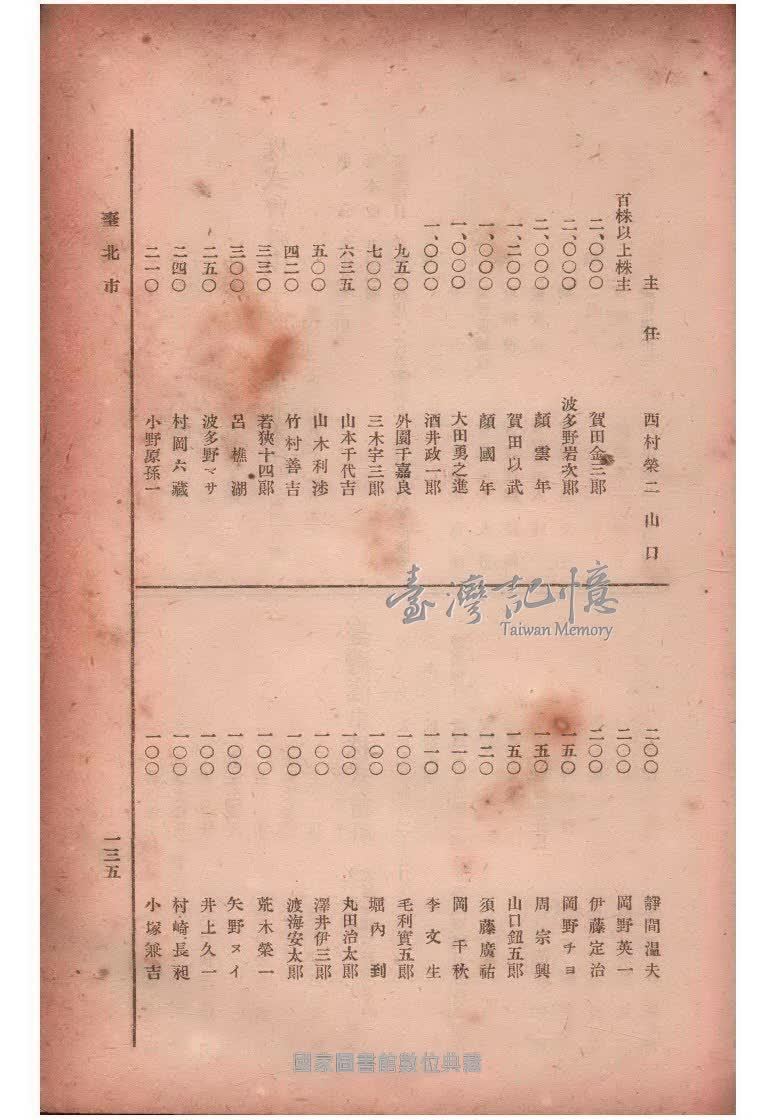 主任　西村榮二　山口
百株以上株主
二、〇〇〇　賀田金三郎
二、〇〇〇　波多野岩次郎
二、〇〇〇　顏雲年
一、二〇〇　賀田以武
一、〇〇〇　顏國年
一、〇〇〇　大田勇之進
一、〇〇〇　酒井政一郎
九五〇　外園千嘉良
七〇〇　三木宇三郎
六三五　山本千代吉
五〇〇　山木利涉
四二〇　竹村善吉
三三〇　若狹十四郎
三〇〇　呂樵湖
二五〇　波多野マサ
二四〇　村岡六藏
二一〇　小野原孫一
二〇〇　靜間溫夫
二〇〇　岡野英一
二〇〇　伊藤定治
一五〇　岡野チヨ
一五〇　周宗興
一五〇　山口鈕五郎
一二〇　須藤廣祐
一一〇　岡千秋
一一〇　李文生
一〇〇　毛利實五郎
一〇〇　堀內到
一〇〇　丸田治太郎
一〇〇　澤井伊三郎
一〇〇　渡海安太郎
一〇〇　荒木榮一
一〇〇　矢野ヌイ
一〇〇　井上久一
一〇〇　村崎長昶
一〇〇　小塚兼吉
臺北市
一三五
臺灣記憶
Taiwan Memory
國家圖書館數位典藏